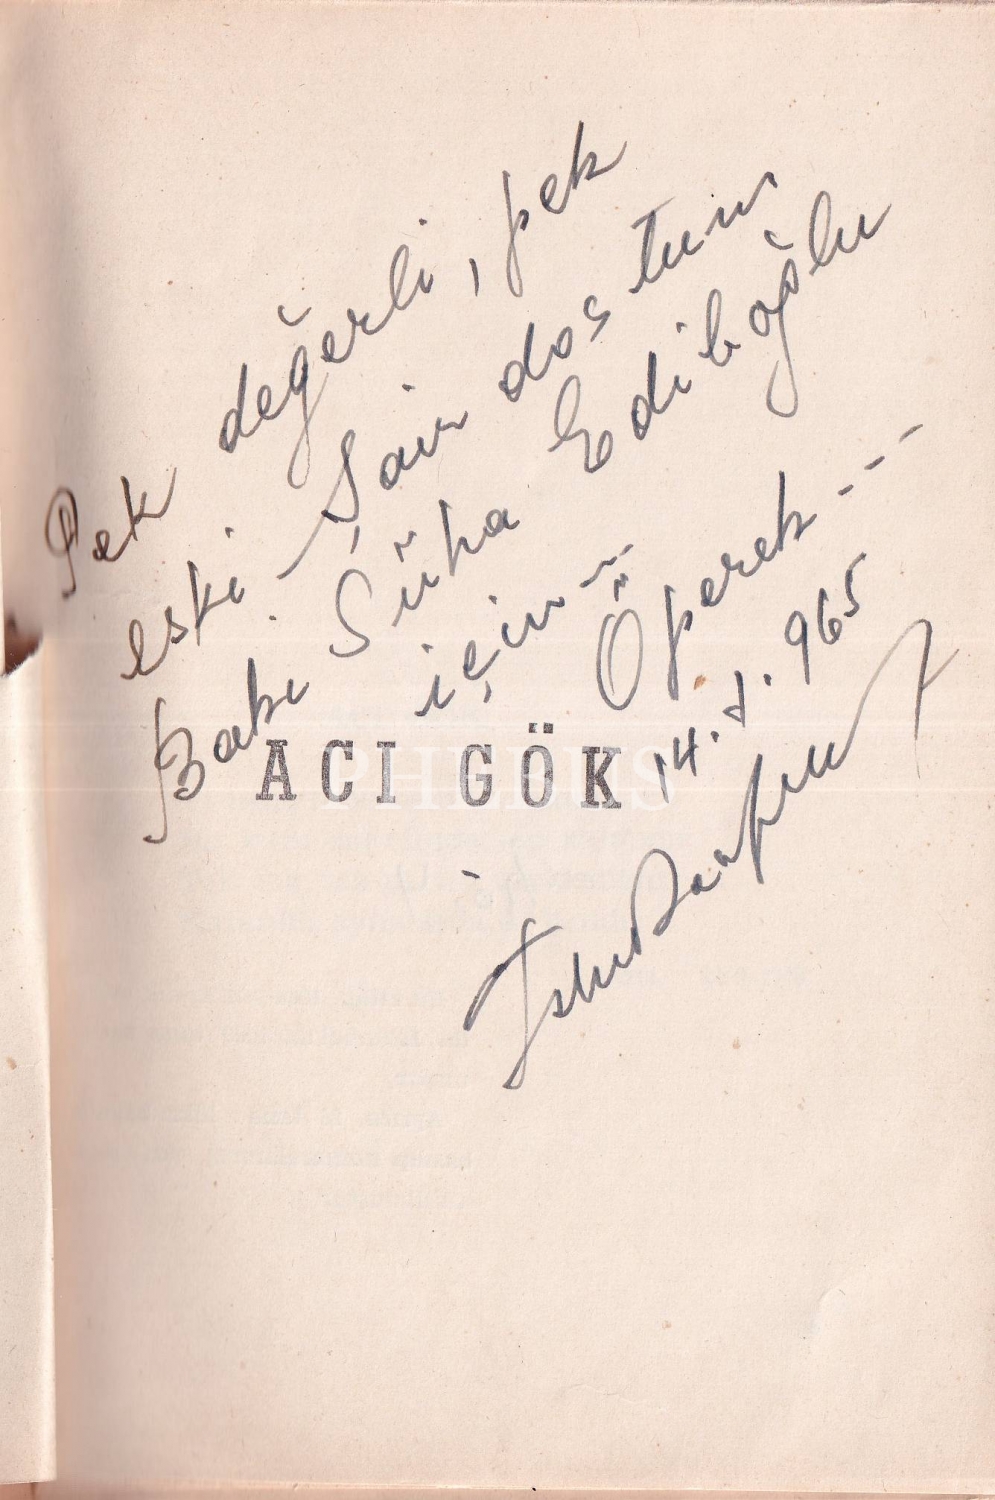 Pek değerli, pek
eski Şair dostum
Baki Süha Ediboğlu
için
Öperek---
14.1.965
ACI GÖK
PHEBUS